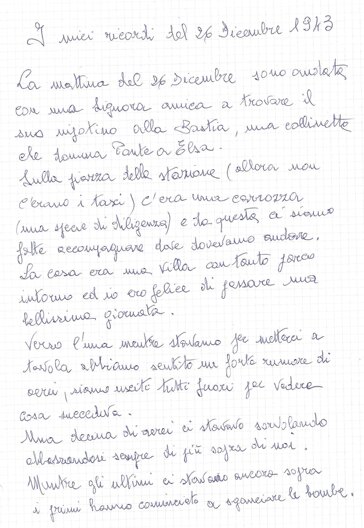 I miei ricordi del 26 Dicembre 1943
La mattina del 26 Dicembre sono andata
con una Signora amica a trovare il
suo nipotino alla Bastia, una collinetta
che domina Ponte a Elsa.
Sulla piazza della stazione (allora non
c'erano i taxi) c'era una carrozza
(una specie di diligenza) e da questa ci siamo
fatte accompagnare dove dovevamo andare.
La casa era una villa con tanto parco
intorno ed io ero felice di passare una
bellissima giornata.
Verso l'una mentre stavamo per metterci a
tavola abbiamo sentito un forte rumore di
aerei, siamo usciti tutti fuori per vedere
cosa succedeva.
Una decina di aerei ci stavano sorvolando
abbassandosi sempre di più sopra di noi.
Mentre gli ultimi ci stavano ancora sopra
i primi hanno cominciato a sganciare le bombe.